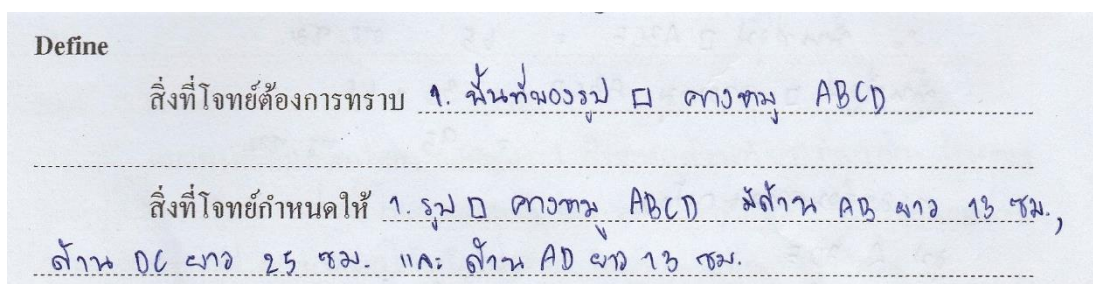 Define
สิ่งที่โจทย์ต้องการทราบ 1. พื้นที่ของรูป □ คางหมู ABCD
สิ่งที่โจทย์กำหนดให้ 1. รูป □ คางหมู ABCD มีด้าน AB ยาว 13 ซม.,
ด้าน DC ยาว 25 ซม. และ ด้าน AD ยาว 13 ซม.